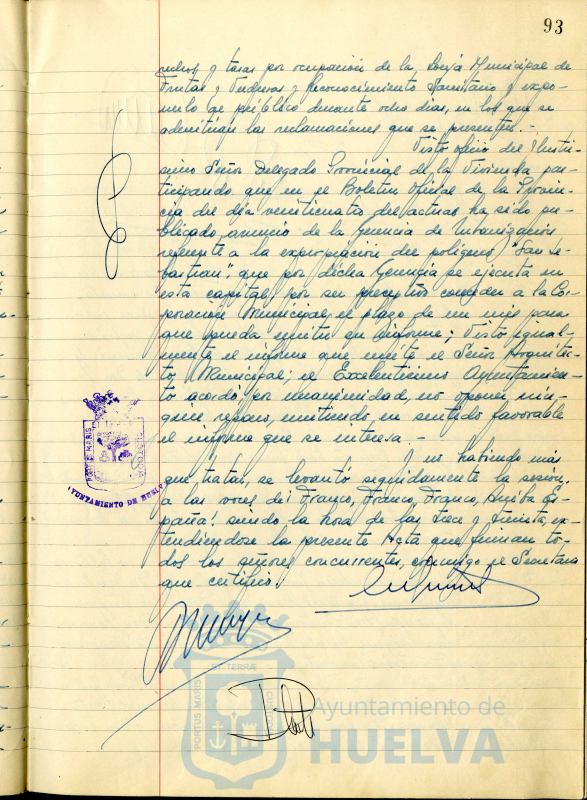 93
rechos y tasas por ocupación de la Lonja Municipal de
Frutas y Verduras y Reconocimiento Sanitario y expo-
nerlo al público durante ocho días, en los que se
admitirán las reclamaciones que se presenten.-
Visto oficio del Ilustrí-
simo Señor Delegado Provincial de la Vivienda par-
ticipando que en el Boletín Oficial de la Provin-
cia del día veinticuatro del actual ha sido pu-
blicado anuncio de la Gerencia de Urbanización
referente a la expropiación del polígono "San Se-
bastián" que por dicha Gerencia se ejecuta en
esta capital, por ser preceptivo conceder a la Cor-
poración Municipal el plazo de un mes para
que pueda emitir su informe; Visto igual-
mente el informe que emite el Señor Arquitec-
to Municipal; el Excelentísimo Ayuntamien-
to acordó por unanimidad, no oponer nin-
gún reparo, emitiendo en sentido favorable
el informe que se interesa.-
Y no habiendo más
que tratar, se levantó seguidamente la sesión,
a las voces de ¡Franco, Franco, Franco, Arriba Es-
paña! siendo la hora de las trece y treinta, ex-
tendiéndose la presente Acta que firman to-
dos los señores concurrentes, conmigo el Secretario
que certifico.
PORTUS MARIS
CUSTODIA
AYUNTAMIENTO DE HUELVA
ET TERRÆ
PORTUS MARIS
CUSTODIA
Ayuntamiento de
HUELVA